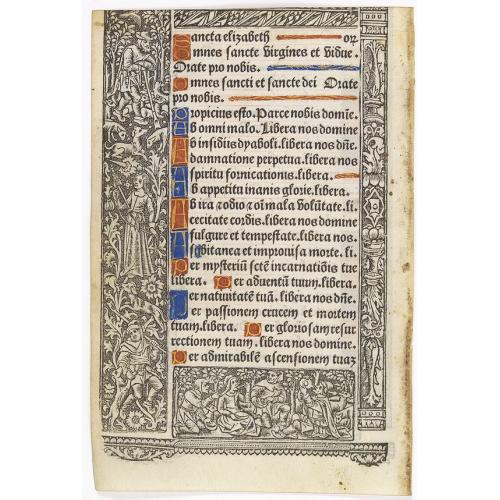 Sancta elizabeth or
Omnes sancte Virgines et Vidue.
Orate pro nobis.
Omnes sancti et sancte dei Orate
pro nobis.
Propicius esto. Parce nobis domīe.
Ab omni malo. Libera nos domine
Ab insidiis dyaboli. libera nos dn̄e.
A damnatione perpetua. libera nos
A spiritu fornicationis. libera.
Ab appetitu inanis glorie. libera.
Ab ira ⁊ odio ⁊ oī mala volūtate. li.
A cecitate cordis. libera nos domine
A fulgure et tempestate. libera nos.
A subitanea et improuisa morte. li.
Per mysteriū sctē incarnatiōis tue
libera. Per aduentū tuum. libera.
Per natiuitatē tuā. libera nos dn̄e.
Per passionem crucem et mortem
tuam. libera. Per gloriosam resur
rectionem tuam. libera nos domine.
Per admirabilē ascensionem tuaꝫ